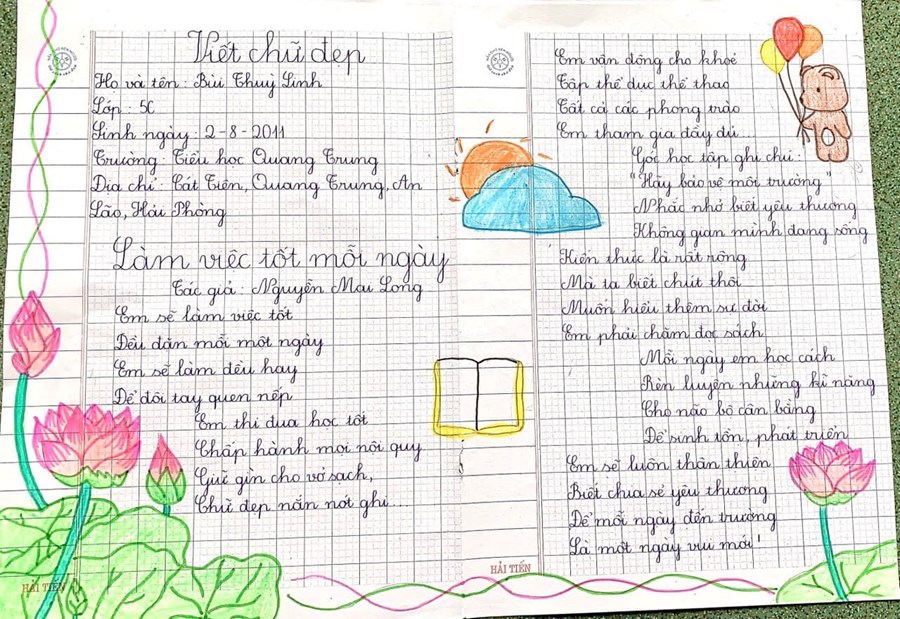 Viết chữ đẹp
Họ và tên : Bùi Thuỳ Linh
Lớp : 5C
Sinh ngày : 2-8-2011
Trường : Tiểu học Quang Trung
Địa chỉ : Cát Tiên, Quang Trung, An
Lão, Hải Phòng
Làm việc tốt mỗi ngày
Tác giả : Nguyễn Mai Long
Em sẽ làm việc tốt
Đều đặn mỗi một ngày
Em sẽ làm điều hay
Để đôi tay quen nếp
Em thi đua học tốt
Chấp hành mọi nội quy
Giữ gìn cho vở sạch,
Chữ đẹp nắn nót ghi...
Em vận động cho khoẻ
Tập thể dục thể thao
Tất cả các phong trào
Em tham gia đầy đủ...
Góc học tập ghi chú :
"Hãy bảo vệ môi trường"
Nhắc nhở biết yêu thương
Không gian mình đang sống
Kiến thức là rất rộng
Mà ta biết chút thôi
Muốn hiểu thêm sự đời
Em phải chăm đọc sách
Mỗi ngày em học cách
Rèn luyện những kĩ năng
Cho não bộ cân bằng
Để sinh tồn, phát triển
Em sẽ luôn thân thiện
Biết chia sẻ yêu thương
Để mỗi ngày đến trường
Là một ngày vui mới!
HẢI TIẾN
HẢI TIẾN